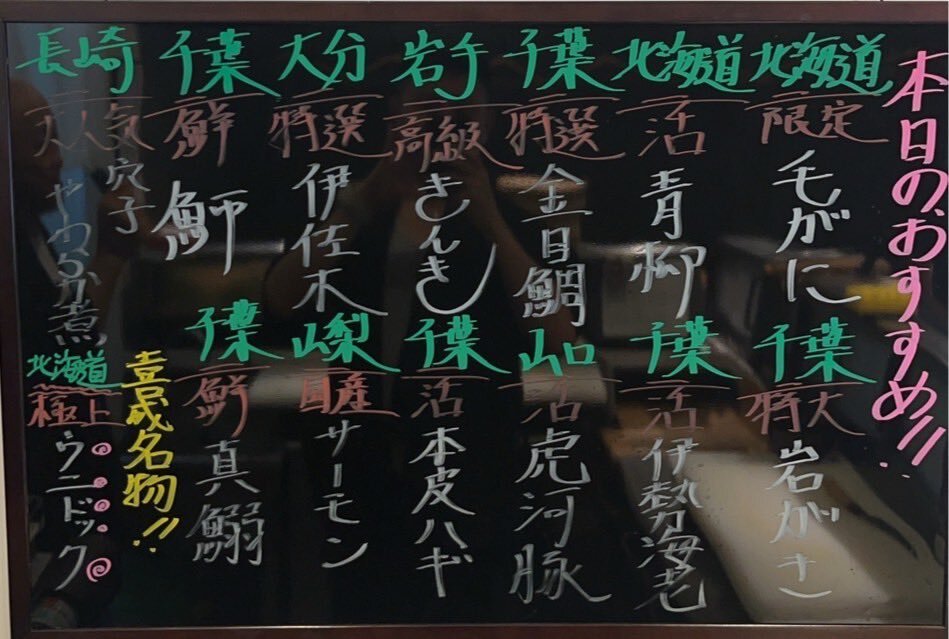 本日のおすすめ!!
北海道
限定
毛がに
千葉
特大
岩がき
北海道
活
青柳
千葉
活
伊勢海老
千葉
特選
金目鯛
山口
活
虎河豚
岩手
高級
きんき
千葉
活
本皮ハギ
大分
特選
伊佐木
山梨
国産
サーモン
千葉
鮮
鰤
千葉
鮮
真鰯
長崎
大人気
穴子
やわらか煮
喜成名物!!
北海道
極上
ウニドック